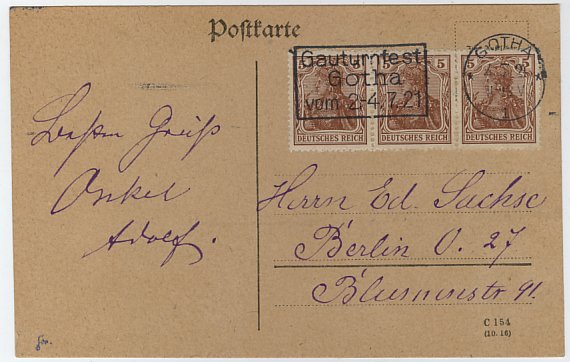 Postkarte
Gauturnfest
Gotha
vom 2-4.7.21
GOTHA
1
5 5 5
DEUTSCHES REICH DEUTSCHES REICH DEUTSCHES REICH
Besten Gruß
Onkel
Adolf.
Herrn Ed. Sachse
Berlin O. 27
Blumenstr 91.
C 154
(10. 16)